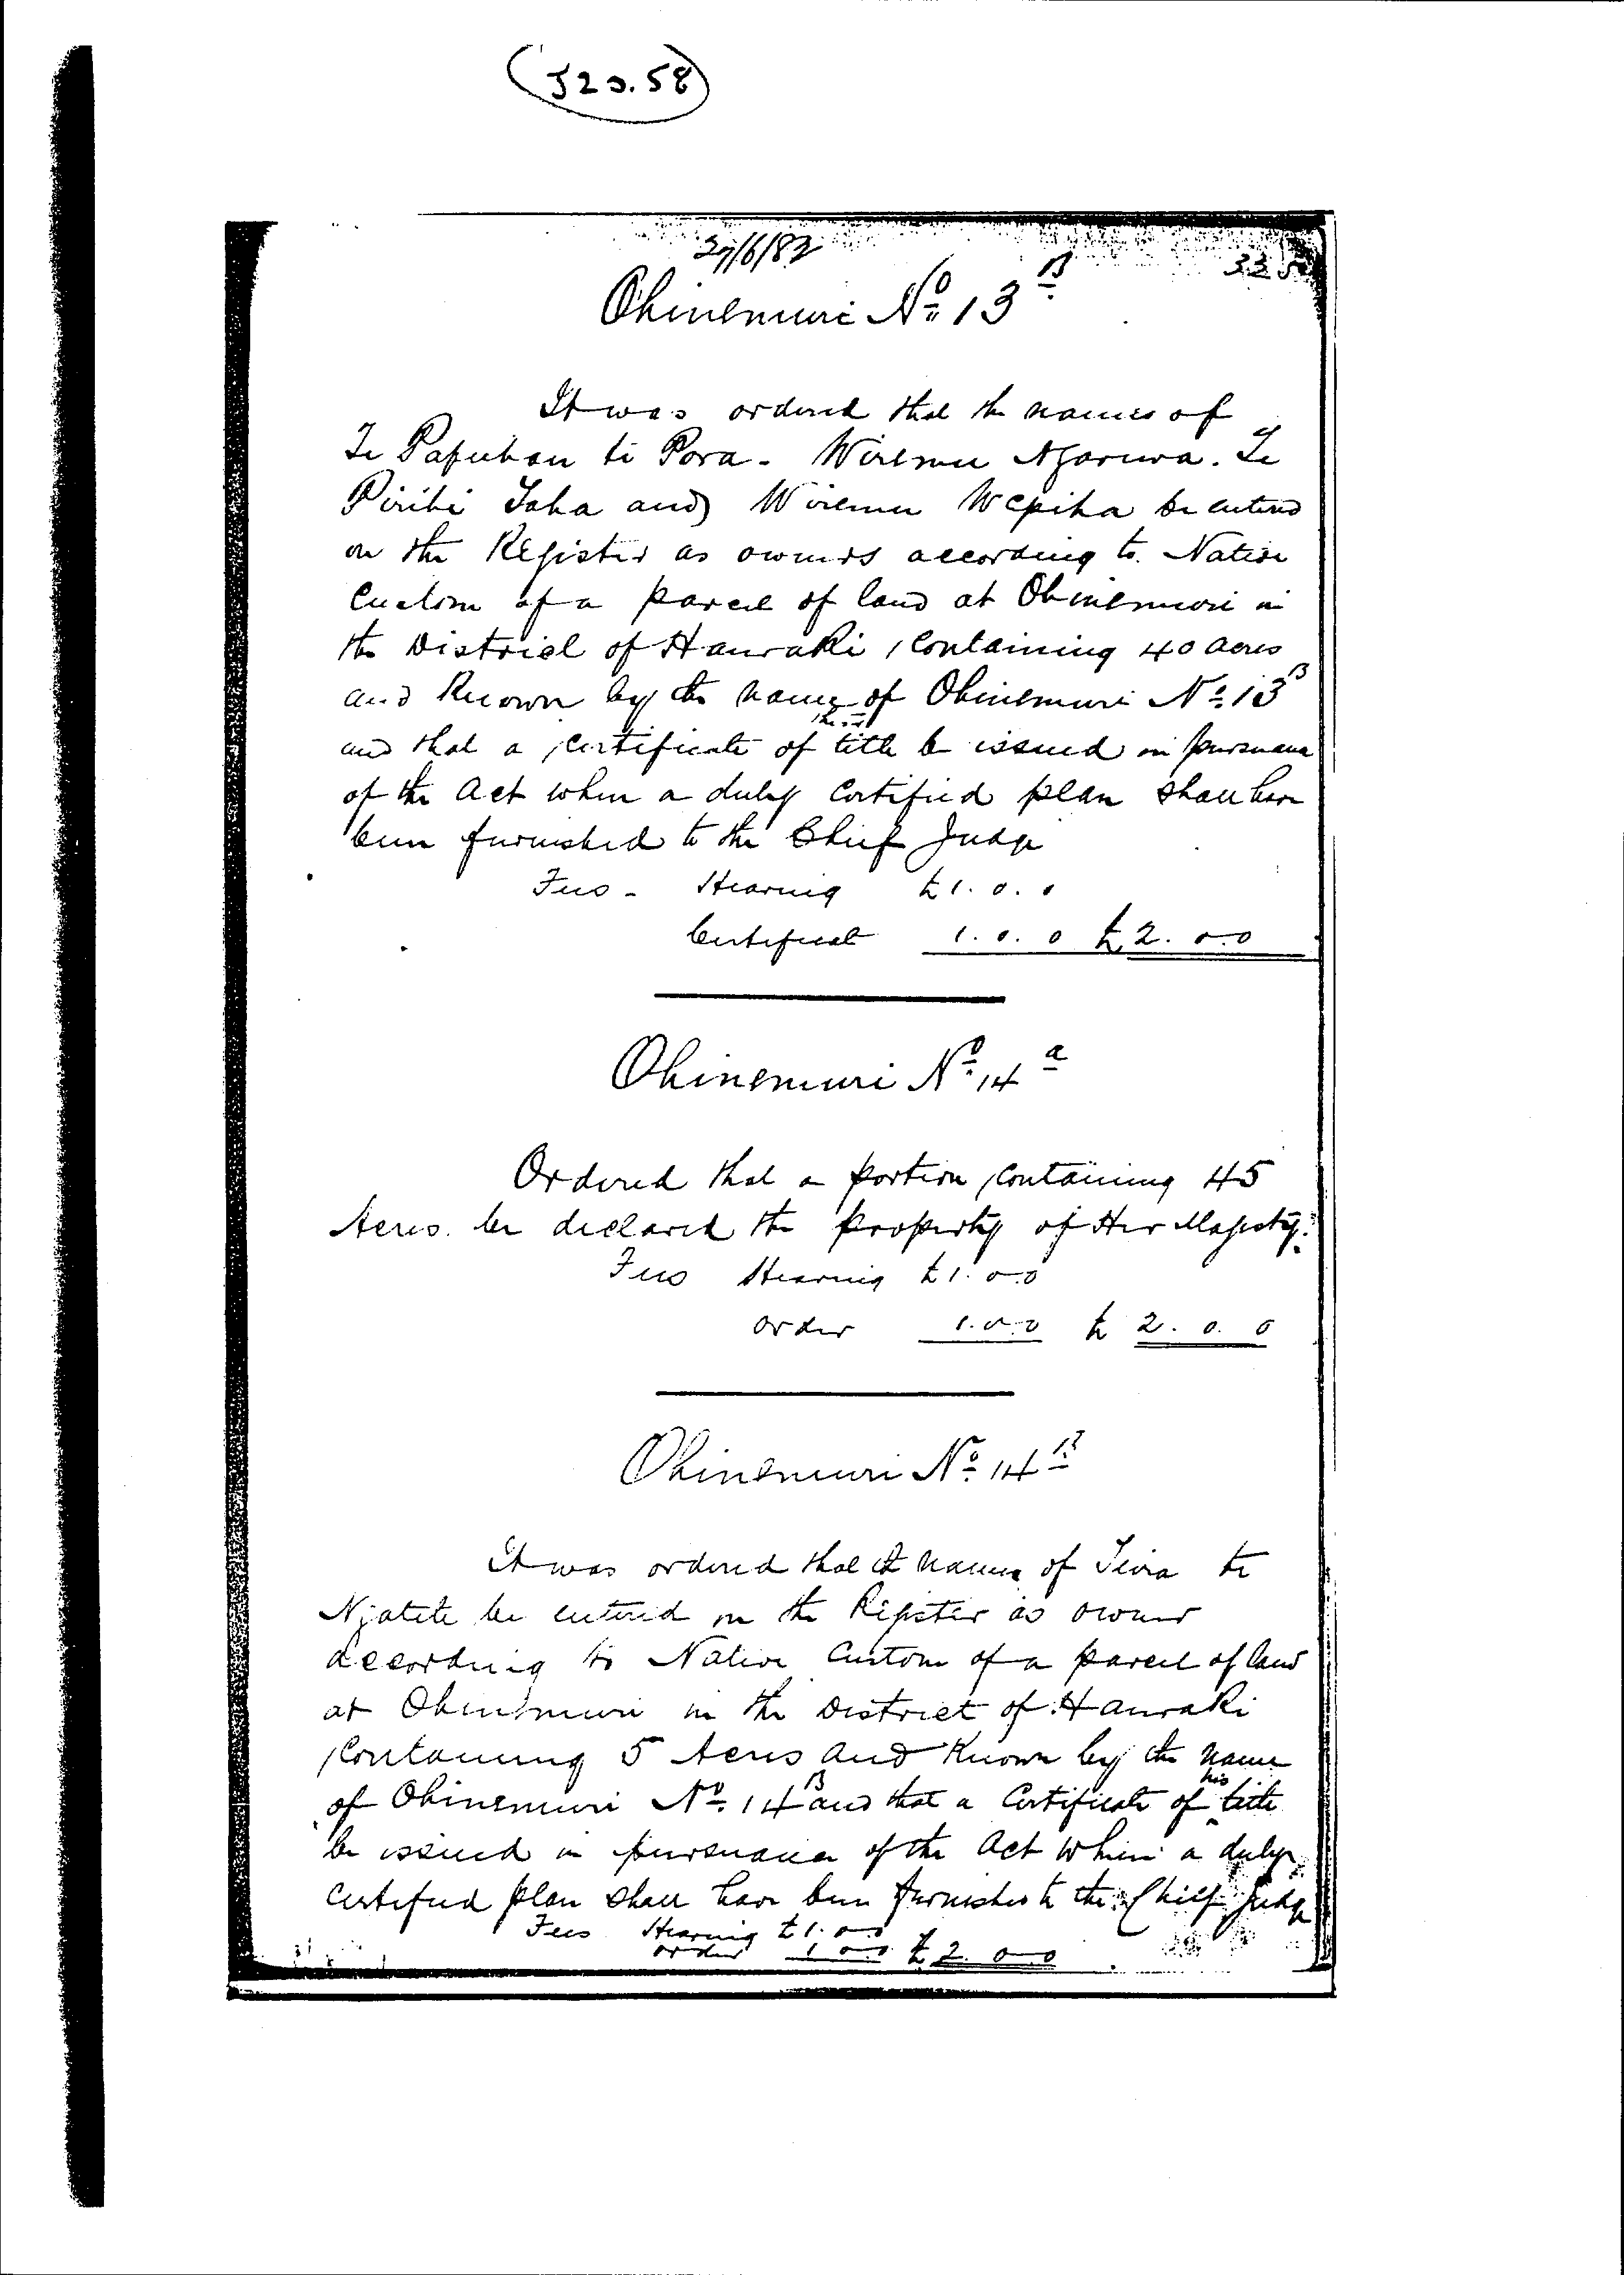 J20.58
27/6/82
Ohinemuri No 13 B
It was ordered that the names of
Te Te Pora. Wiremu Ngaruwa. Te
Piriki Taha and Wiremu Wepiha be entered
on the Register as owners according to Native
Custom of a parcel of land at Ohinemuri in
the District of Hauraki, containing 40 acres
and known by the name of Ohinemuri No 13 B
and that a certificate of their title be issued in pursuance
of the Act when a duly certified plan shall have
been furnished to the Chief Judge
Fees - Hearing £1.0.0
Certificate 1.0.0 £2.0.0
Ohinemuri No 14 a
Ordered that a portion containing 45
Acres be declared the property of Her Majesty.
Fees Hearing £1.0.0
order 1.0.0 £2.0.0
Ohinemuri No 14 B
It was ordered that the name of te
Ngatete be entered on the Register as owner
according to Native Custom of a parcel of land
at Ohinemuri in the District of Hauraki
containing 5 Acres and known by the name
of Ohinemuri No 14 B and that a Certificate of his title
be issued in pursuance of the Act when a duly
certified plan shall have been furnished to the Chief Judge
Fees Hearing £1.0.0
order 1.0.0 £2.0.0